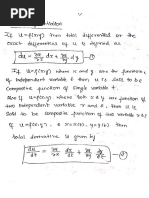 If u=f(x,y) then total differential or the
exact differential of u is defined as
du = ∂u/∂x dx + ∂u/∂y dy — ①
If u=f(x,y) where x and y are the function
of independent variable t then u is said to be
Composite function of Single variable t.
If u=f(x,y) where x & y are function of
two independent variable and t, then u is
Said to be a Composite function of two
variable
total derivative is given by
du/dt = ∂u/∂x dx/dt + ∂u/∂y dy/dt — ②